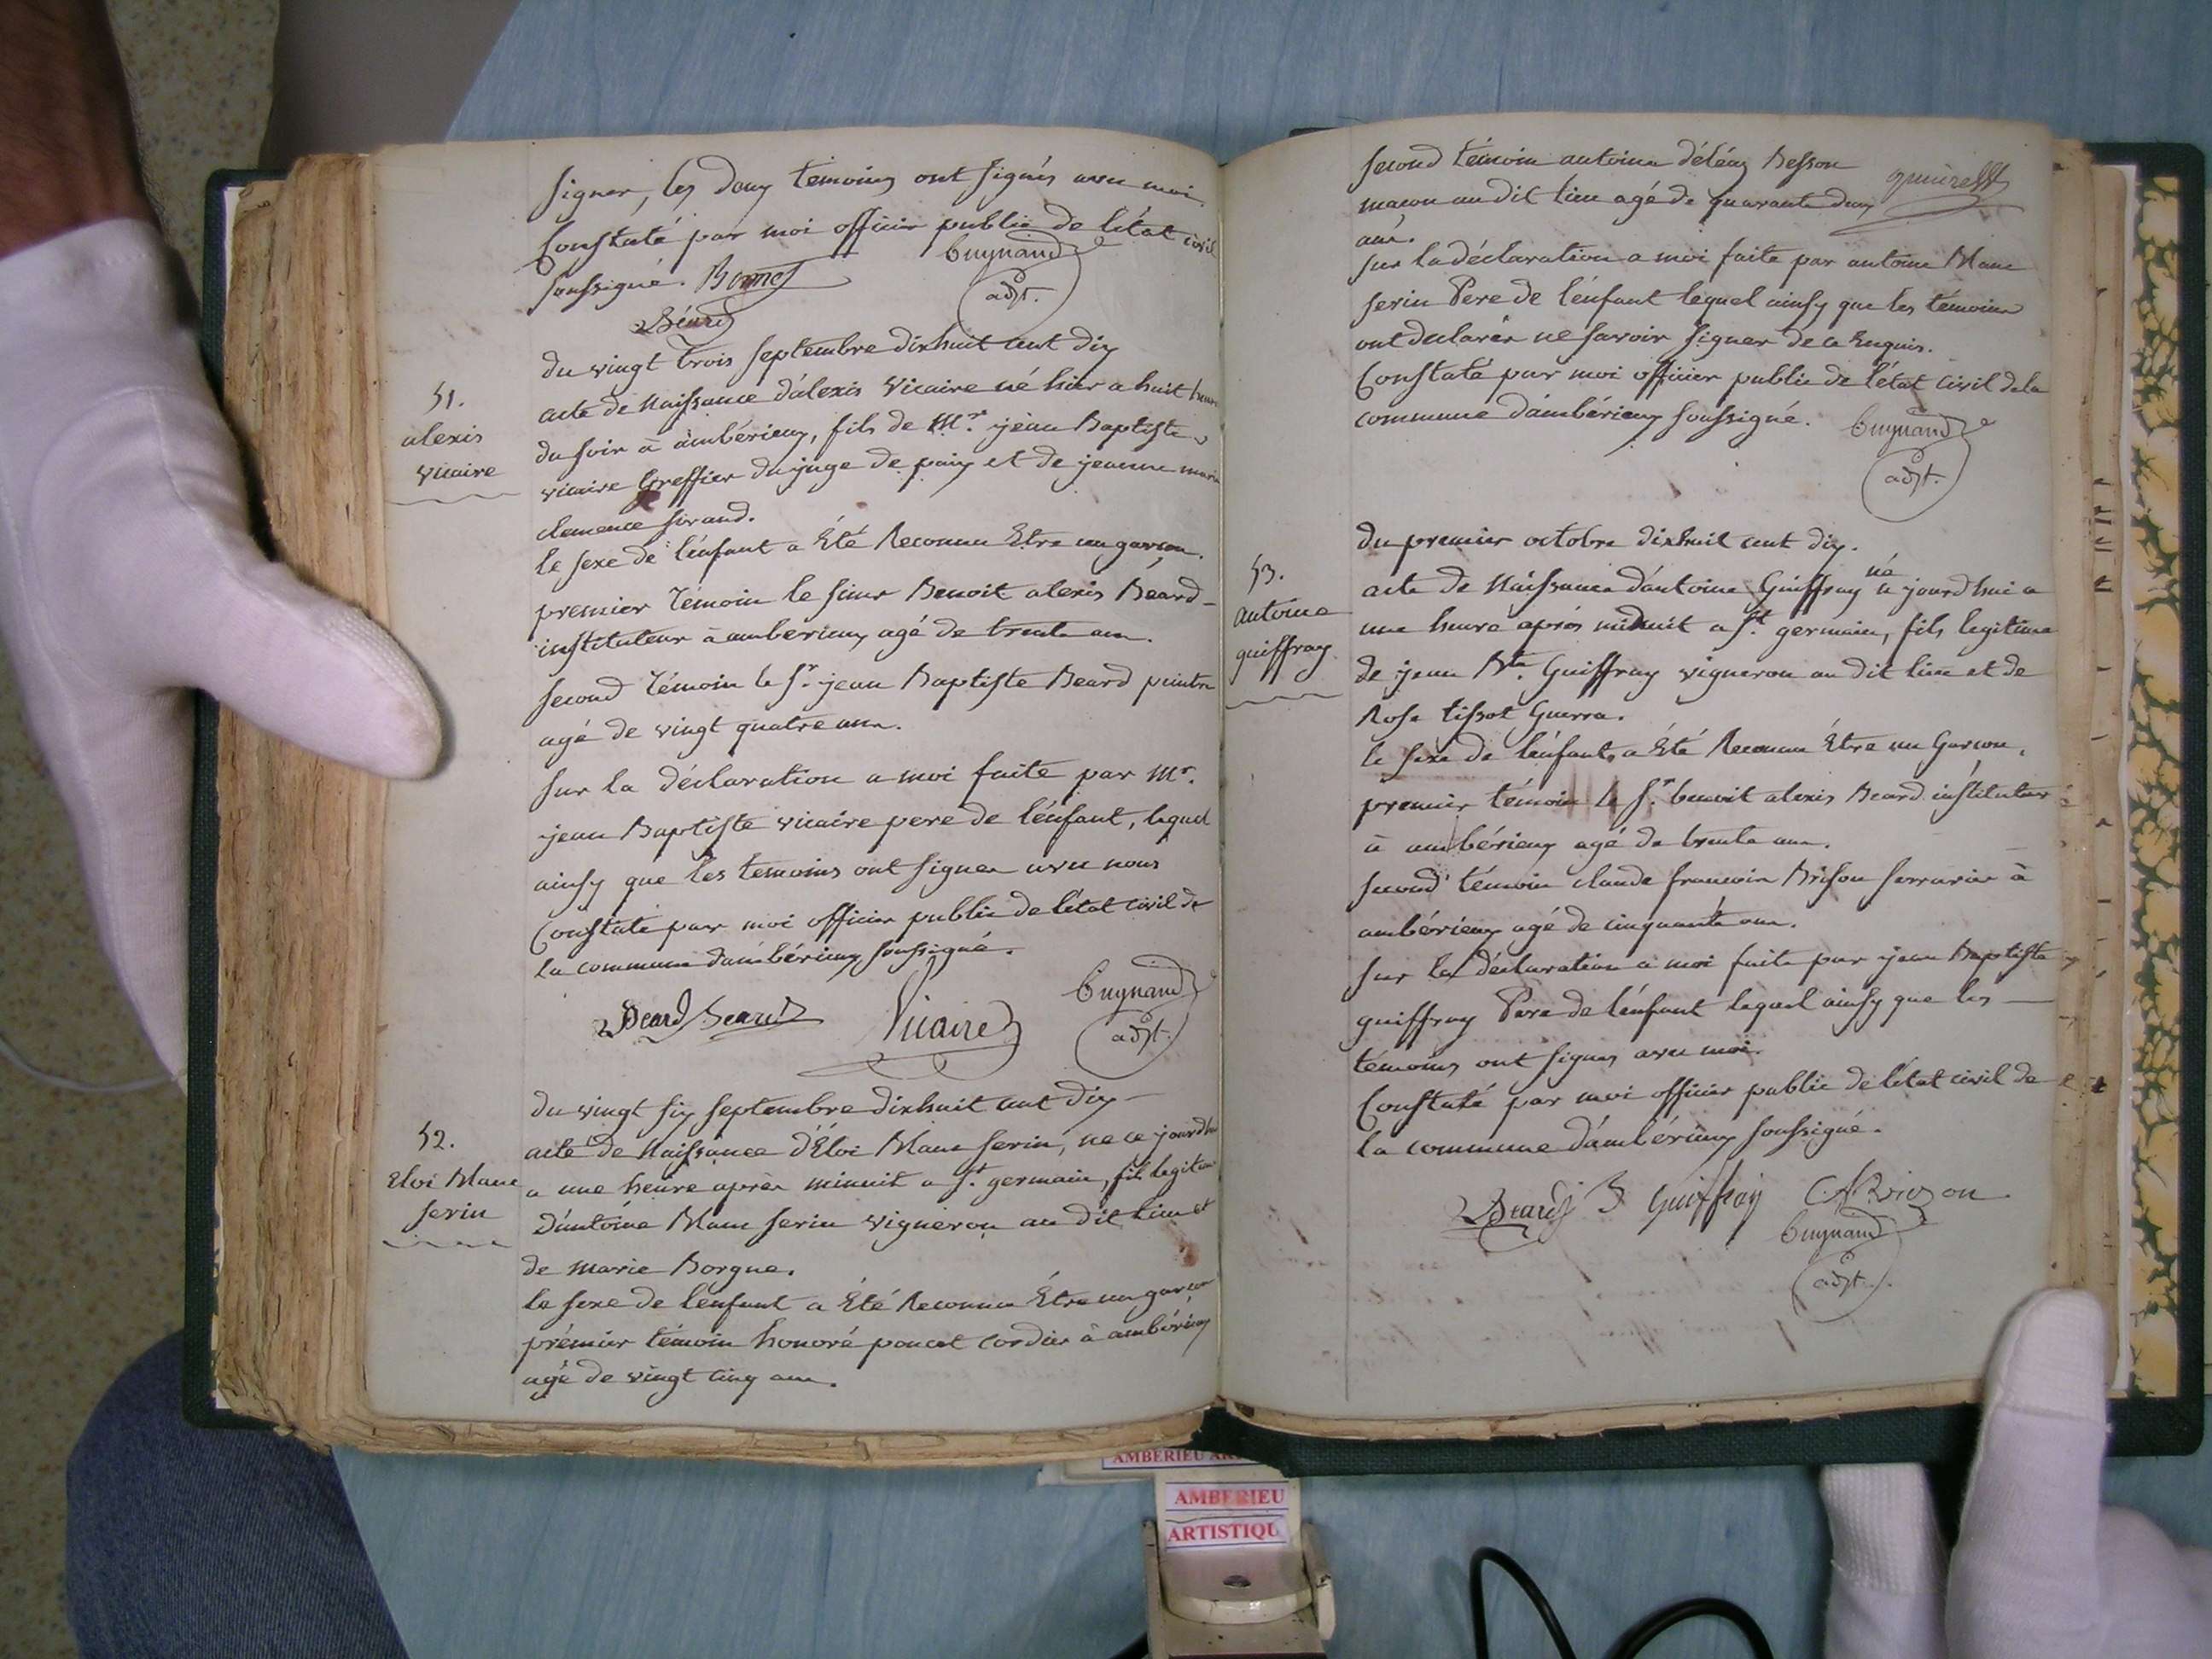 signer, les deux temoins ont signés avec moi.
Constaté par moi officier public de l'état civil
soussigné. Bonnet
Guynand
adjt.
Béard
du vingt trois septembre dixhuit cent dix
51.
alexis
vicaire
acte de Naissance d'alexis Vicaire né hier a huit heures
du soir à ambérieux, fils de Mr. jean Baptiste
vicaire Greffier du juge de paix et de jeanne marie
clemence sirand.
le sexe de l'énfant a Été Reconnu Etre un garcon.
premier Témoin le sieur Benoit alexis Béard
instituteur à amberieux agé de trente ans.
second Témoin le Sr. jean Baptiste Beard peintre
agé de vingt quatre ans.
sur la déclaration a moi faite par Mr.
jean Baptiste vicaire pere de l'énfant, lequel
ainsy que les temoins ont signer avec nous
Constaté par moi officier public de l'état civil de
la commune d'ambérieux soussigné.
Beard Beard Vicaire
Guynand
adjt.
du vingt six septembre dixhuit cent dix
52.
Eloi Blanc
serin
acte de Naissance d'Éloi Blanc serin, né ce jourdhui
a une heure après minuit a St. germain, fils legitime
D'antoine Blanc serin vigneron au dit lieu et
de marie Borgne.
le sexe de l'enfant a Été Reconnu Etre un garcon
prémier témoin honoré poncet cordier à ambérieux
agé de vingt cinq ans.
second témoin antoine délény Besson
maçon au dit lieu agé de quarante deux
ans.
sur la déclaration a moi faite par antoine Blanc
serin Pere de l'énfant lequel ainsy que les témoins
ont déclarés ne savoir signer de ce Enquis.
Constaté par moi officier public de l'état civil de la
commune d'ambérieux soussigné.
Guynand
adjt.
du premier octobre dixhuit cent dix.
53.
antoine
guiffray
acte de Naissance d'antoine Guiffray né a jourdhui a
une heure après minuit a St. germain, fils legitime
de jean Bte. Guiffray vigneron au dit lieu et de
Rose tissot Guerra.
le sexe de l'énfant a Été Reconnu Être un Garcon.
premier témoin le Sr. benoit alexis Beard instituteur
à ambérieux agé de trente ans.
second témoin claude francois Brison serrurier à
ambérieux agé de cinquante ans.
sur la déclaration a moi faite par jean Baptiste
guiffray Pere de l'énfant lequel ainsy que les
témoins ont signes avec moi.
Constaté par moi officier public de l'état civil de
la commune d'ambérieux soussigné.
Beard J Guiffray C. f. Brison
Guynand
adjt.
AMBERIEU
AMBERIEU
ARTISTIQU